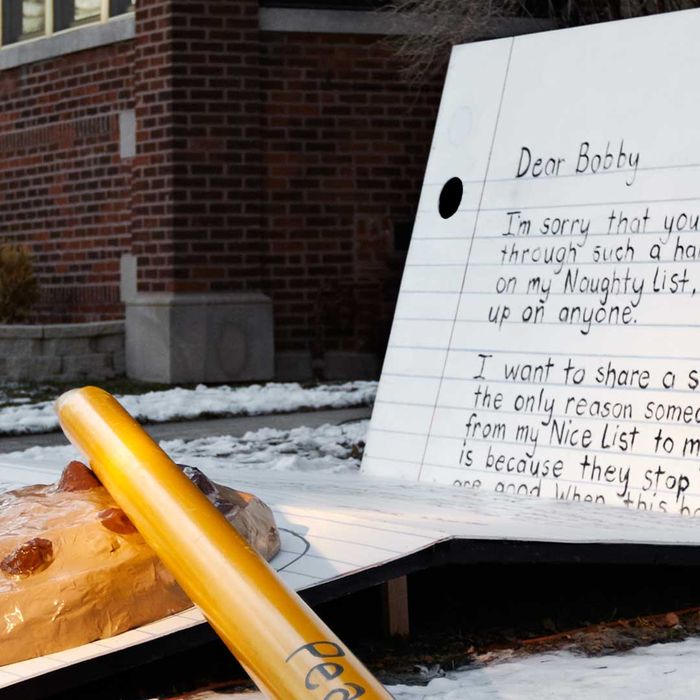 Dear Bobby
I'm sorry that you
through such a ha
on my Noughty List,
up on anyone.
I want to share a s
the only reason some
from my Nice List to m
is because they stop
are good When this
Pea